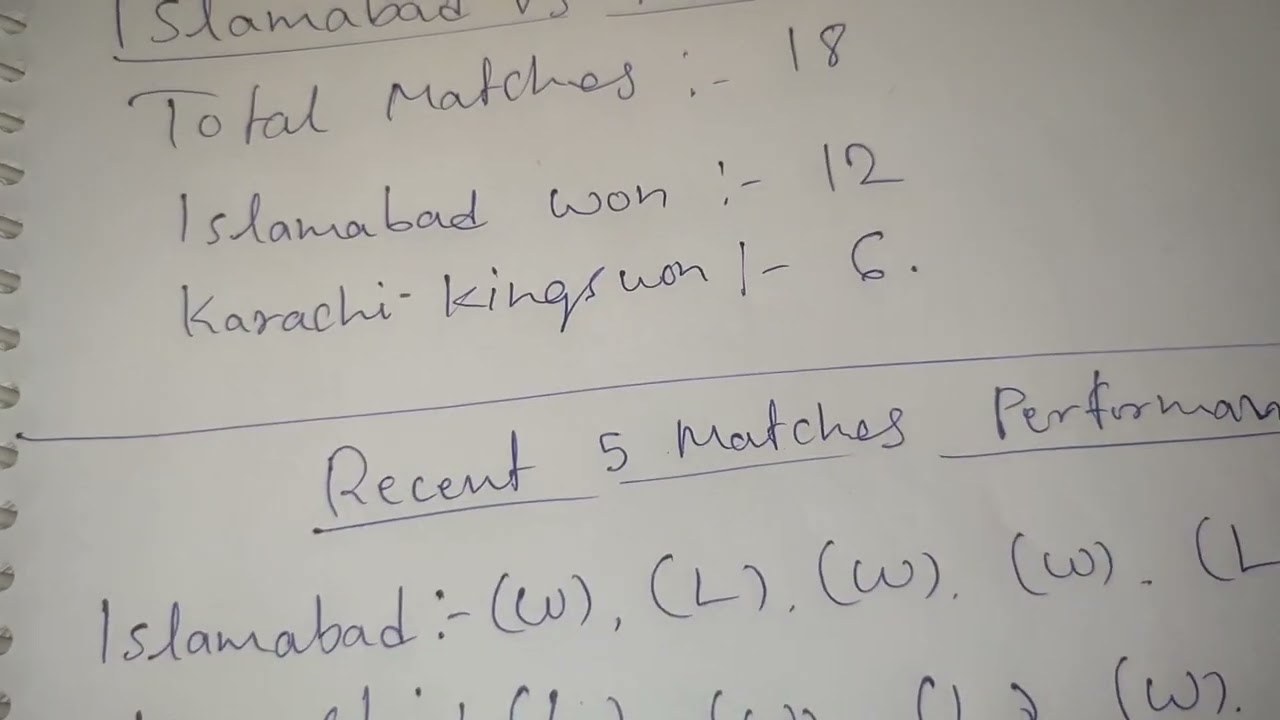 Islamabad vs
Total Matches :- 18
Islamabad won :- 12
Karachi-Kings won :- 6.
Recent 5 Matches
Islamabad :- (W), (L), (W). (W). (L
(W).